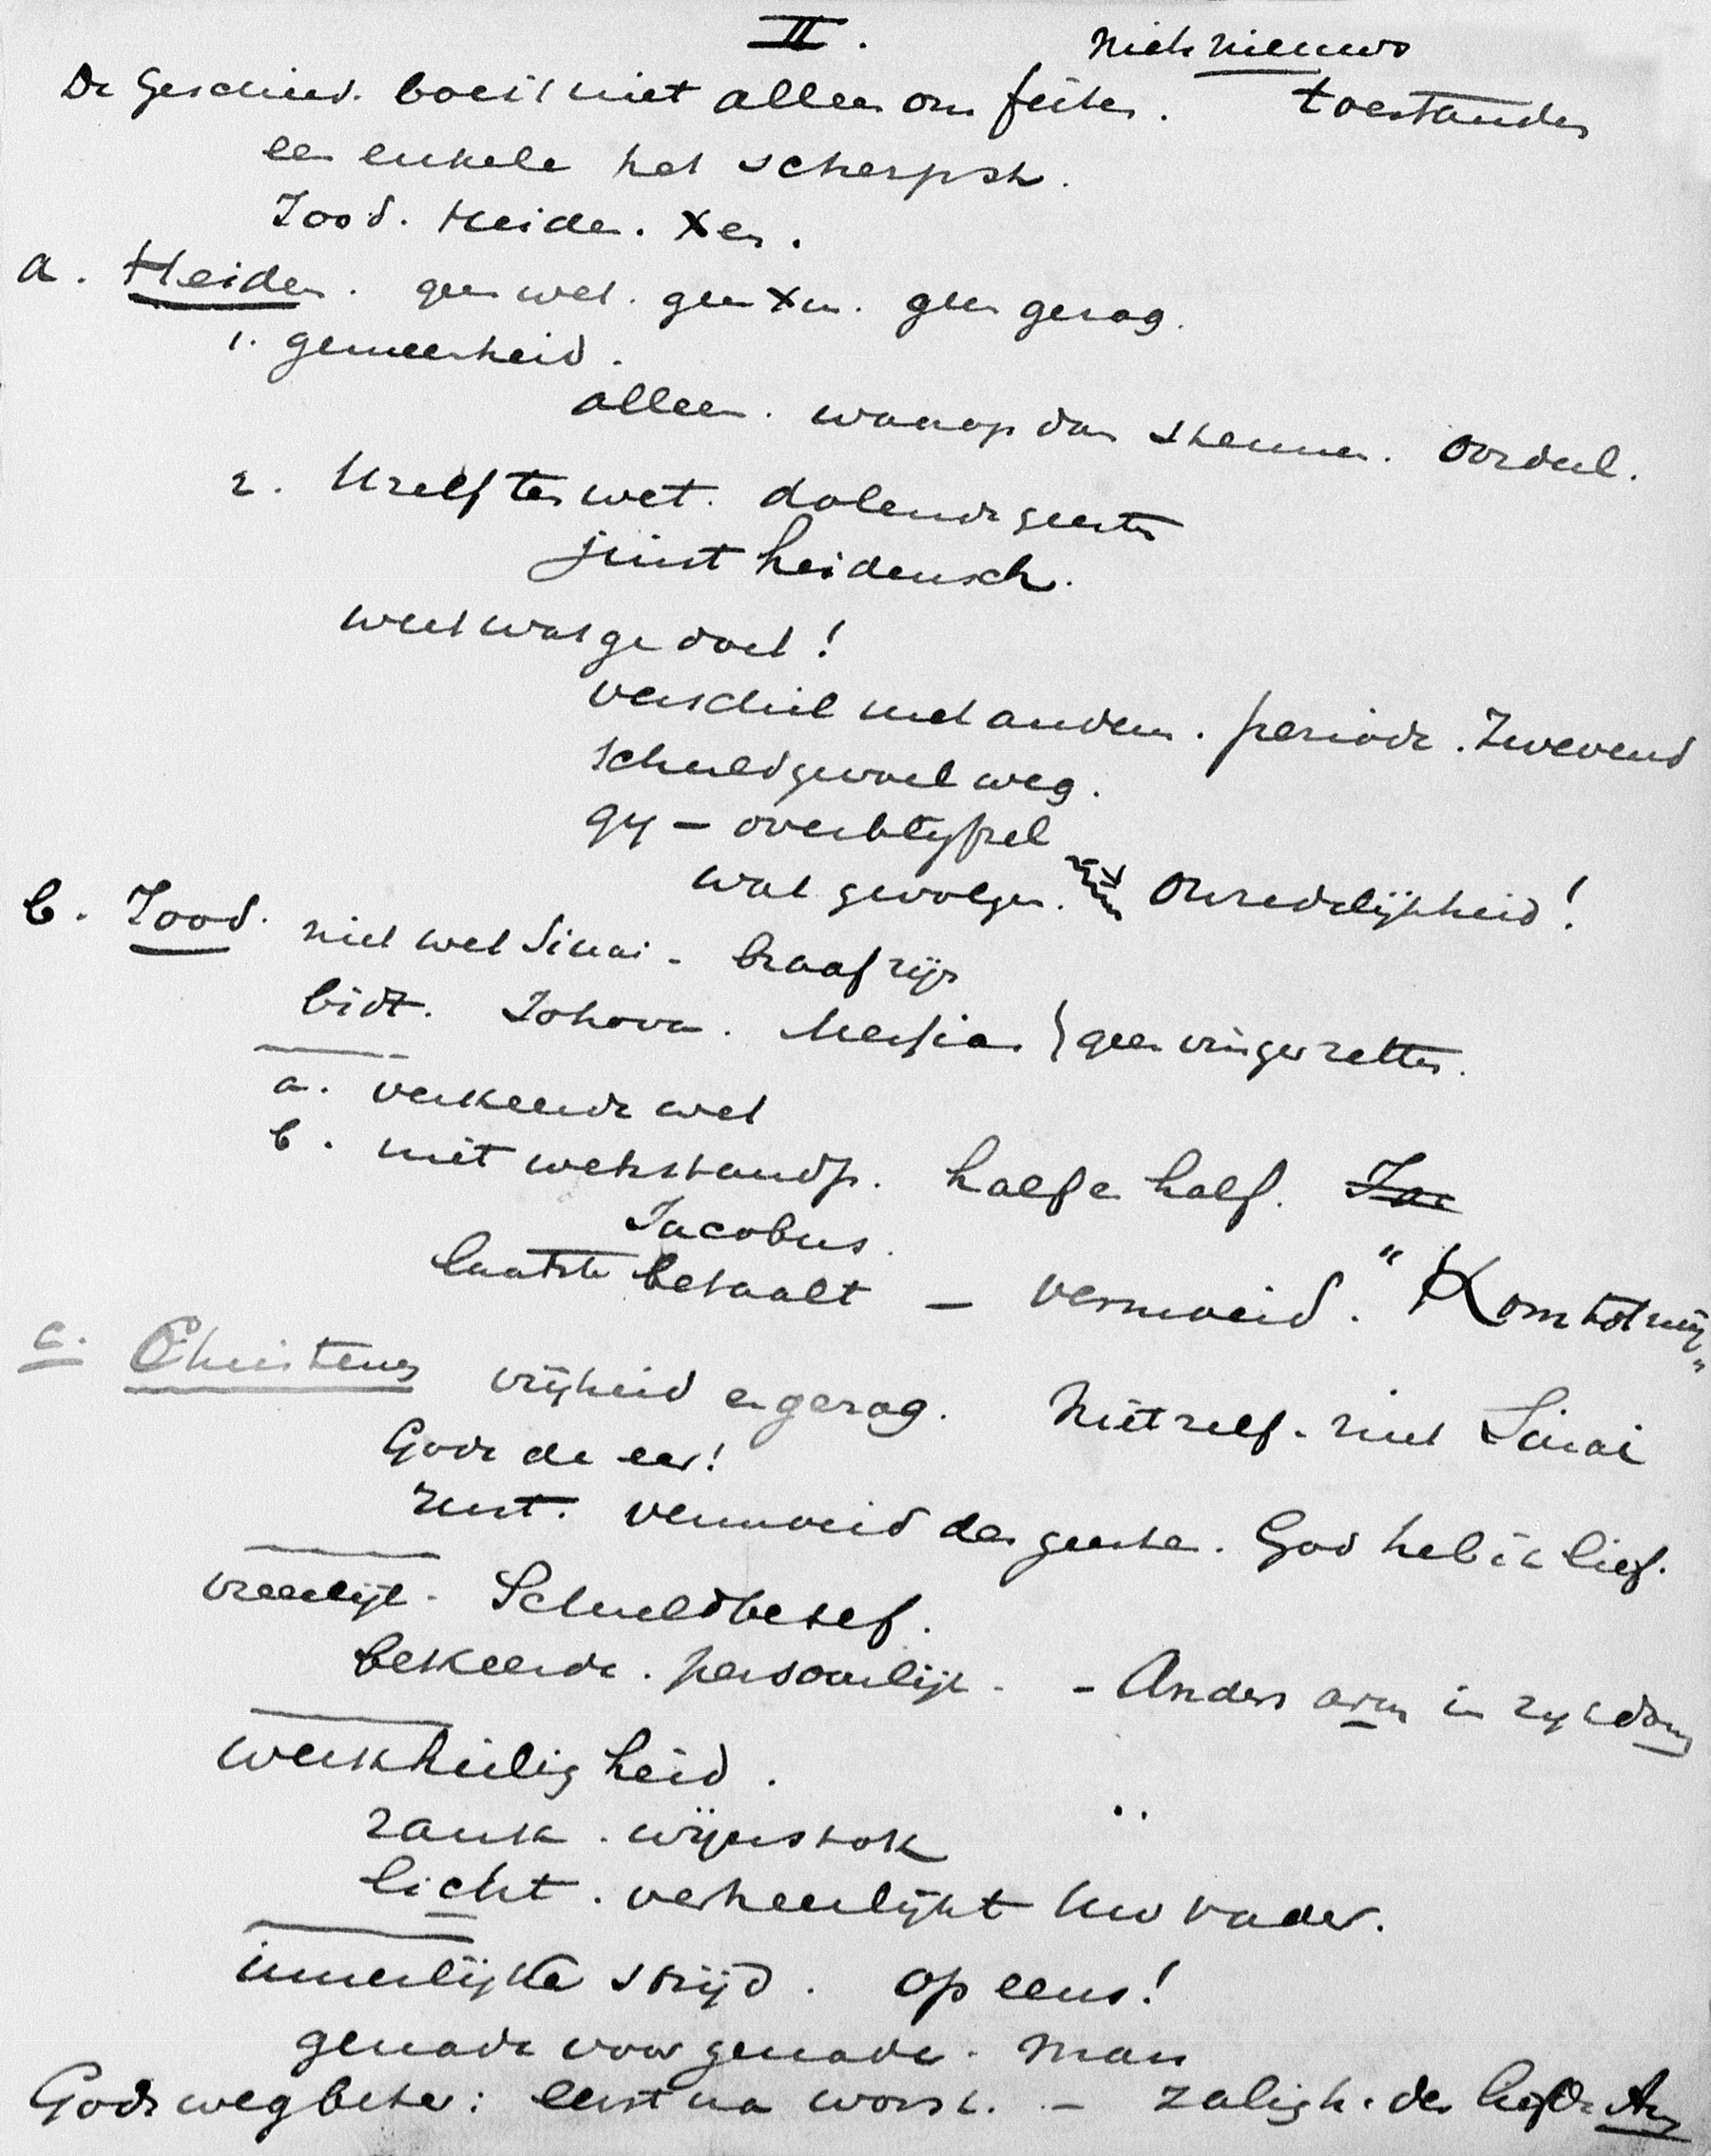 II.
niets nieuws
De Geschied. boeit niet alleen om feiten. toestanden
een enkele het scherpst.
Jood. Heiden. Xen.
a. Heiden. geen wet. geen Xen. geen gezag.
1. gemeenheid.
alleen. waarop dan steunen. oordeel.
2. Uzelf ten wet. dolende geesten
juist heidensch.
weet wat ge doet!
verschil met anderen. periode. Zwevend
schuldgevoel weg.
gy – overblyfsel
wat gevolgen. Onredelijkheid!
b. Jood. niet wet Sinai - braaf zijn
bidt. Jehova. Messias } geen vinger zetten.
a. verkeerde wet
b. niet wetstandp. half en half. Jac
Jacobus.
laatste betaalt – vermoeid. "Kom tot mij"
c. Christenen vrijheid en gezag. Niet zelf - niet Sinai
Gode de eer!
rust. vermoeid den geeste. God heb ik lief.
vreeselijk. Schuldbesef.
bekeerde. persoonlijk. - Anders arm in rykdom
werkheiligheid.
rank. wijnstok
licht. verheerlijkt Uw vader.
innerlijke strijd. op eens!
genade voor genade. man
Gods weg beter: eerst na worst. – zaligh. der liefde